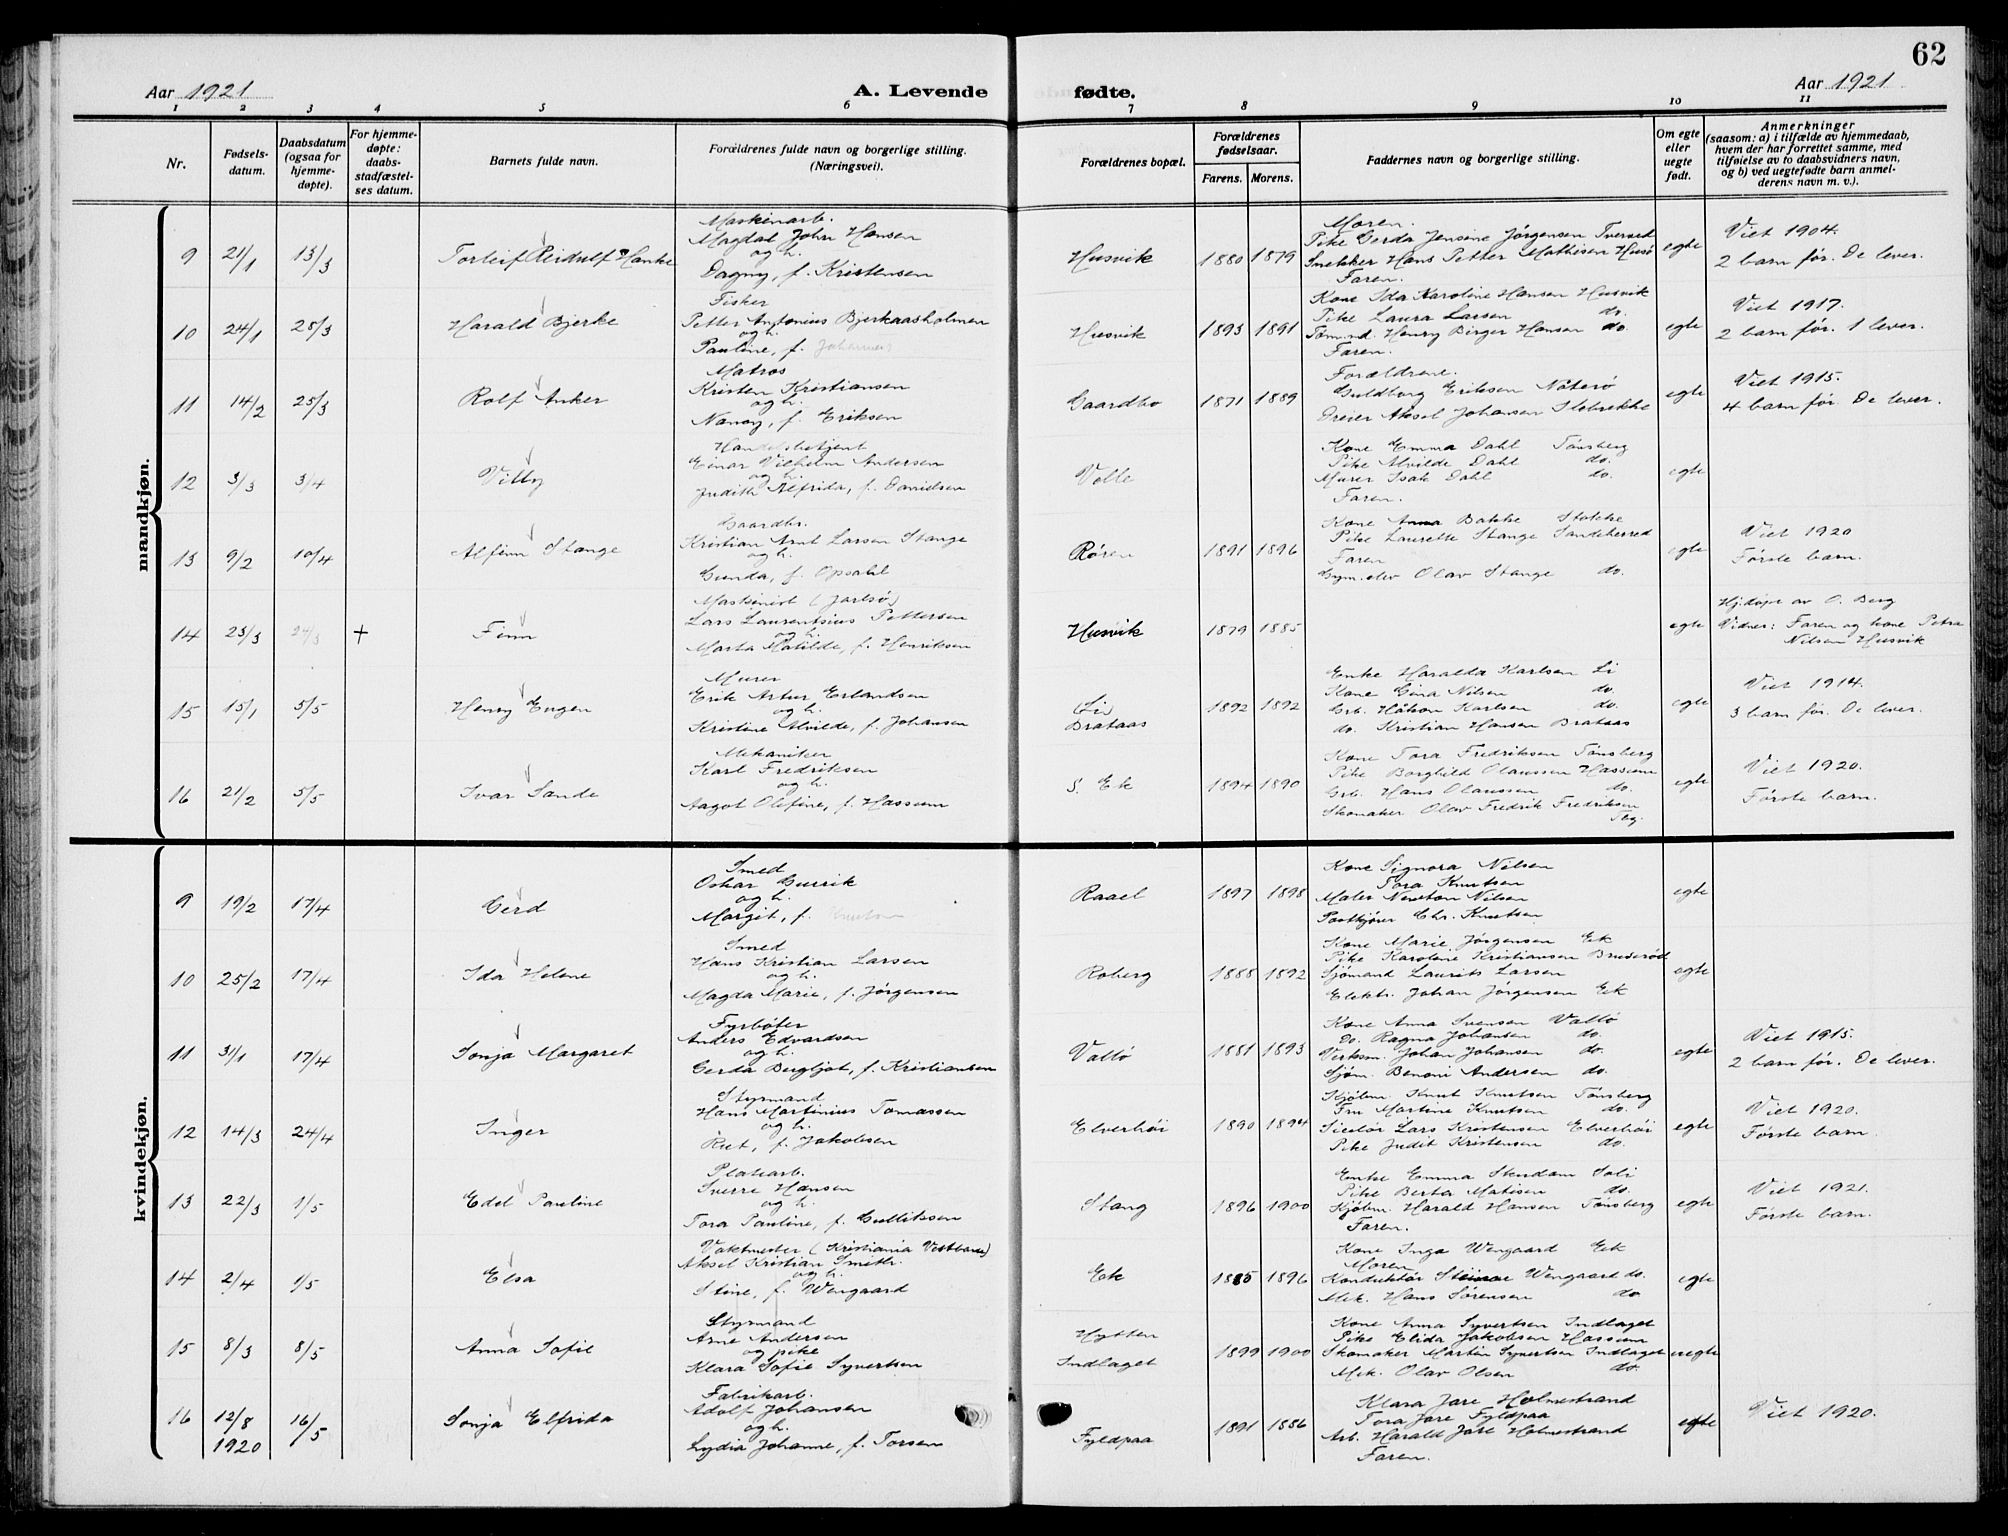 62
Aar 1921
A. Levende
fødte.
Aar 1921
1 2 3 4 5 6 7 8 9 10 11
Nr.
Fødsels-
datum.
Daabsdatum
(ogsaa for
hjemme-
døpte).
For hjemme-
døpte:
daabs-
stadfæstel-
ses datum.
Barnets fulde navn.
Forældrenes fulde navn og borgerlige stilling.
(Næringsvei).
Forældrenes bopæl.
Forældrenes
fødselsaar.
Farens. Morens.
Faddernes navn og borgerlige stilling.
Om egte
eller
uegte
født.
Anmerkninger
(saasom: a) i tilfælde av hjemmedaab,
hvem der har forrettet samme, med
tilføielse av to daabsvidners navn,
og b) ved uegtefødte barn anmel-
derens navn m. v.).
mandkjøn.
9 21/1 13/3 Torleif Reidulf Hanke
Maskinarb.
Magdal John Hansen
og h.
Dagny, f. Kristensen
Husvik 1880 1879
Moren.
Pike Gerda Jensine Jørgensen Tverved
Snekker Hans Petter Mathisen Husø
Faren.
egte
Viet 1904.
2 barn før. De lever.
10 24/1 25/3 Harald Bjerke
Fisker
Petter Antonius Bjerkaasholmen
og h.
Pauline, f.
Husvik 1893 1891
Kone Ida Karoline Hansen Husvik
Pike Laura Larsen do.
Tømmd. Henry Birger Hansen do.
Faren.
egte
Viet 1917.
2 barn før. 1 lever.
11 14/2 25/3 Rolf Anker
Matros
Kristen Kristiansen
og h.
Nancy, f. Eriksen
Gaardbo 1871 1889
Forældrene.
Guldborg Eriksen Nøterø
Dreier Aksel Johansen Slobrekke
egte
Viet 1915.
4 barn før. De lever.
12 3/3 3/4 Villy
Handelsbetjent
Einar Vilhelm Andersen
og h.
Judith Alfrida, f. Danielsen
Volle
Kone Emma Dahl Tønsberg
Pike Alvilde Dahl do.
Murer Isak Dahl do.
Faren.
egte
13 9/2 10/4 Alfinn Stange
Gaardbr.
Kristian Arnt Larsen Stange
og h.
Gunda, f. Opsahl
Røren 1891 1896
Kone Anna Bakke Stokke
Pike Laurette Stange Sandeherred
Faren
Gym.elev Olav Stange do.
egte
Viet 1920
Første barn.
14 23/3 24/3 + Finn
Maskinist (Jarlsø)
Lars Laurentsius Pettersen
og h.
Marta Matilde, f. Henriksen
Husvik 1879 1885
egte
Hj.døpt av O. Berg
Vidner: Faren og kone Petra
Nilsen Husvik
15 15/1 5/5 Henry Eugen
Murer
Erik Artur Erlandsen
og h.
Kristine Alvilde, f. Johansen
Li
Brataas
1892 1892
Enke Haralda Karlsen Li
Kone Gina Nilsen do.
Grb. Håkon Karlsen do.
do. Kristian Hansen Brataas
egte
Viet 1914.
3 barn før. De lever.
16 21/2 5/5 Ivar Sande
Mekaniker
Karl Fredriksen
og h.
Aagot Olefine, f. Hassum
S. Ek 1894 1890
Kone Tora Fredriksen Tønsberg
Pike Borghild Olaussen Hassum
Grb. Hans Olaussen do.
Skomaker Olav Fredrik Fredriksen
Tbg.
egte
Viet 1920.
Første barn.
kvindekjøn.
9 19/2 17/4 Gerd
Smed
Oskar Gurrik
og h.
Margit, f. Knutsen
Raael 1897 1898
Kone Signora Nilsen
Tora Knutsen
Maler Newton Nilsen
Postkjører Chr. Knutsen
egte
10 25/2 17/4 Ida Helene
Smed
Hans Kristian Larsen
og h.
Magda Marie, f. Jørgensen
Roberg 1888 1892
Kone Marie Jørgensen Ek
Pike Karoline Kristiansen Bruserød
Sjømand Laurits Larsen
Elektr. Johan Jørgensen Ek
egte
11 31/1 17/4 Sonja Margaret
Fyrbøter
Anders Edvardsen
og h.
Gerda Bergljot, f. Kristiansen
Vallø 1881 1893
Kone Anna Svensen Vallø
do. Ragna Johansen do.
Verksm. Johan Johansen do.
Sjøm. Benoni Andersen do.
egte
Viet 1915.
2 barn før. De lever.
12 14/3 24/4 Inger
Styrmand
Hans Martinius Tomassen
og h.
Rut, f. Jakobsen
Elverhöi 1890 1894
Kjøbm. Knut Knutsen Tønsberg
Fru Martine Knutsen do.
Lars Kristensen Elverhöi
Pike Judit Kristensen do.
egte
Viet 1920.
Første barn.
13 22/3 1/5 Edel Pauline
Platearb.
Sverre Hansen
og h.
Tora Pauline, f. Gulliksen
Stang 1896 1900
Enke Emma Stendam Soli
Pike Berta Matisen do.
Kjøbm. Harald Hansen Tønsberg
Faren.
egte
Viet 1921.
Første barn.
14 2/4 1/5 Elsa
Vaktmester (Kristiania Vestbane)
Aksel Kristian Smith.
og h.
Stine, f. Wengaard
Ek 1885 1896
Kone Inga Wengaard Ek
Moren
Konduktør Steinar Wengaard do.
Mek. Hans Sørensen do
egte
15 8/3 8/5 Anna Sofie
Styrmand
Arne Andersen
og pike
Klara Sofie Syvertsen
Hytten
Indlaget
1899 1900
Kone Anna Syvertsen Indlaget
Pike Elida Jakobsen Hassum
Skomaker Martin Syvertsen Indlaget
Mek. Olav Olsen do.
uegte
16 12/8 1920 16/5 Sonja Elfrida
Fabrikarb.
Adolf Johansen
og h.
Lydia Johanne, f. Torsen
Fyldpaa 1891 1886
Klara Jare Holmestrand
Tora Jare Fyldpaa
Arb. Harald Jare Holmestrand
Faren.
egte
Viet 1920.